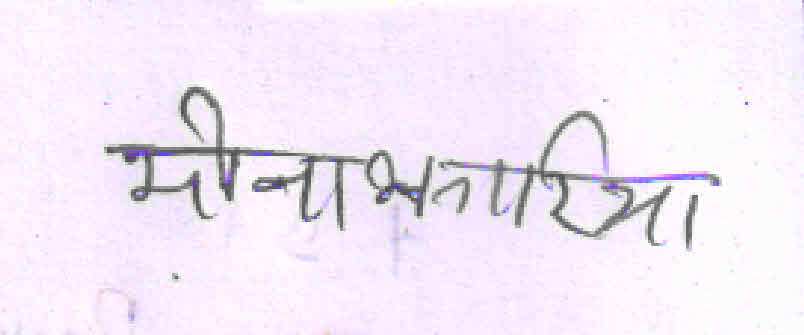 मीना भगारिया